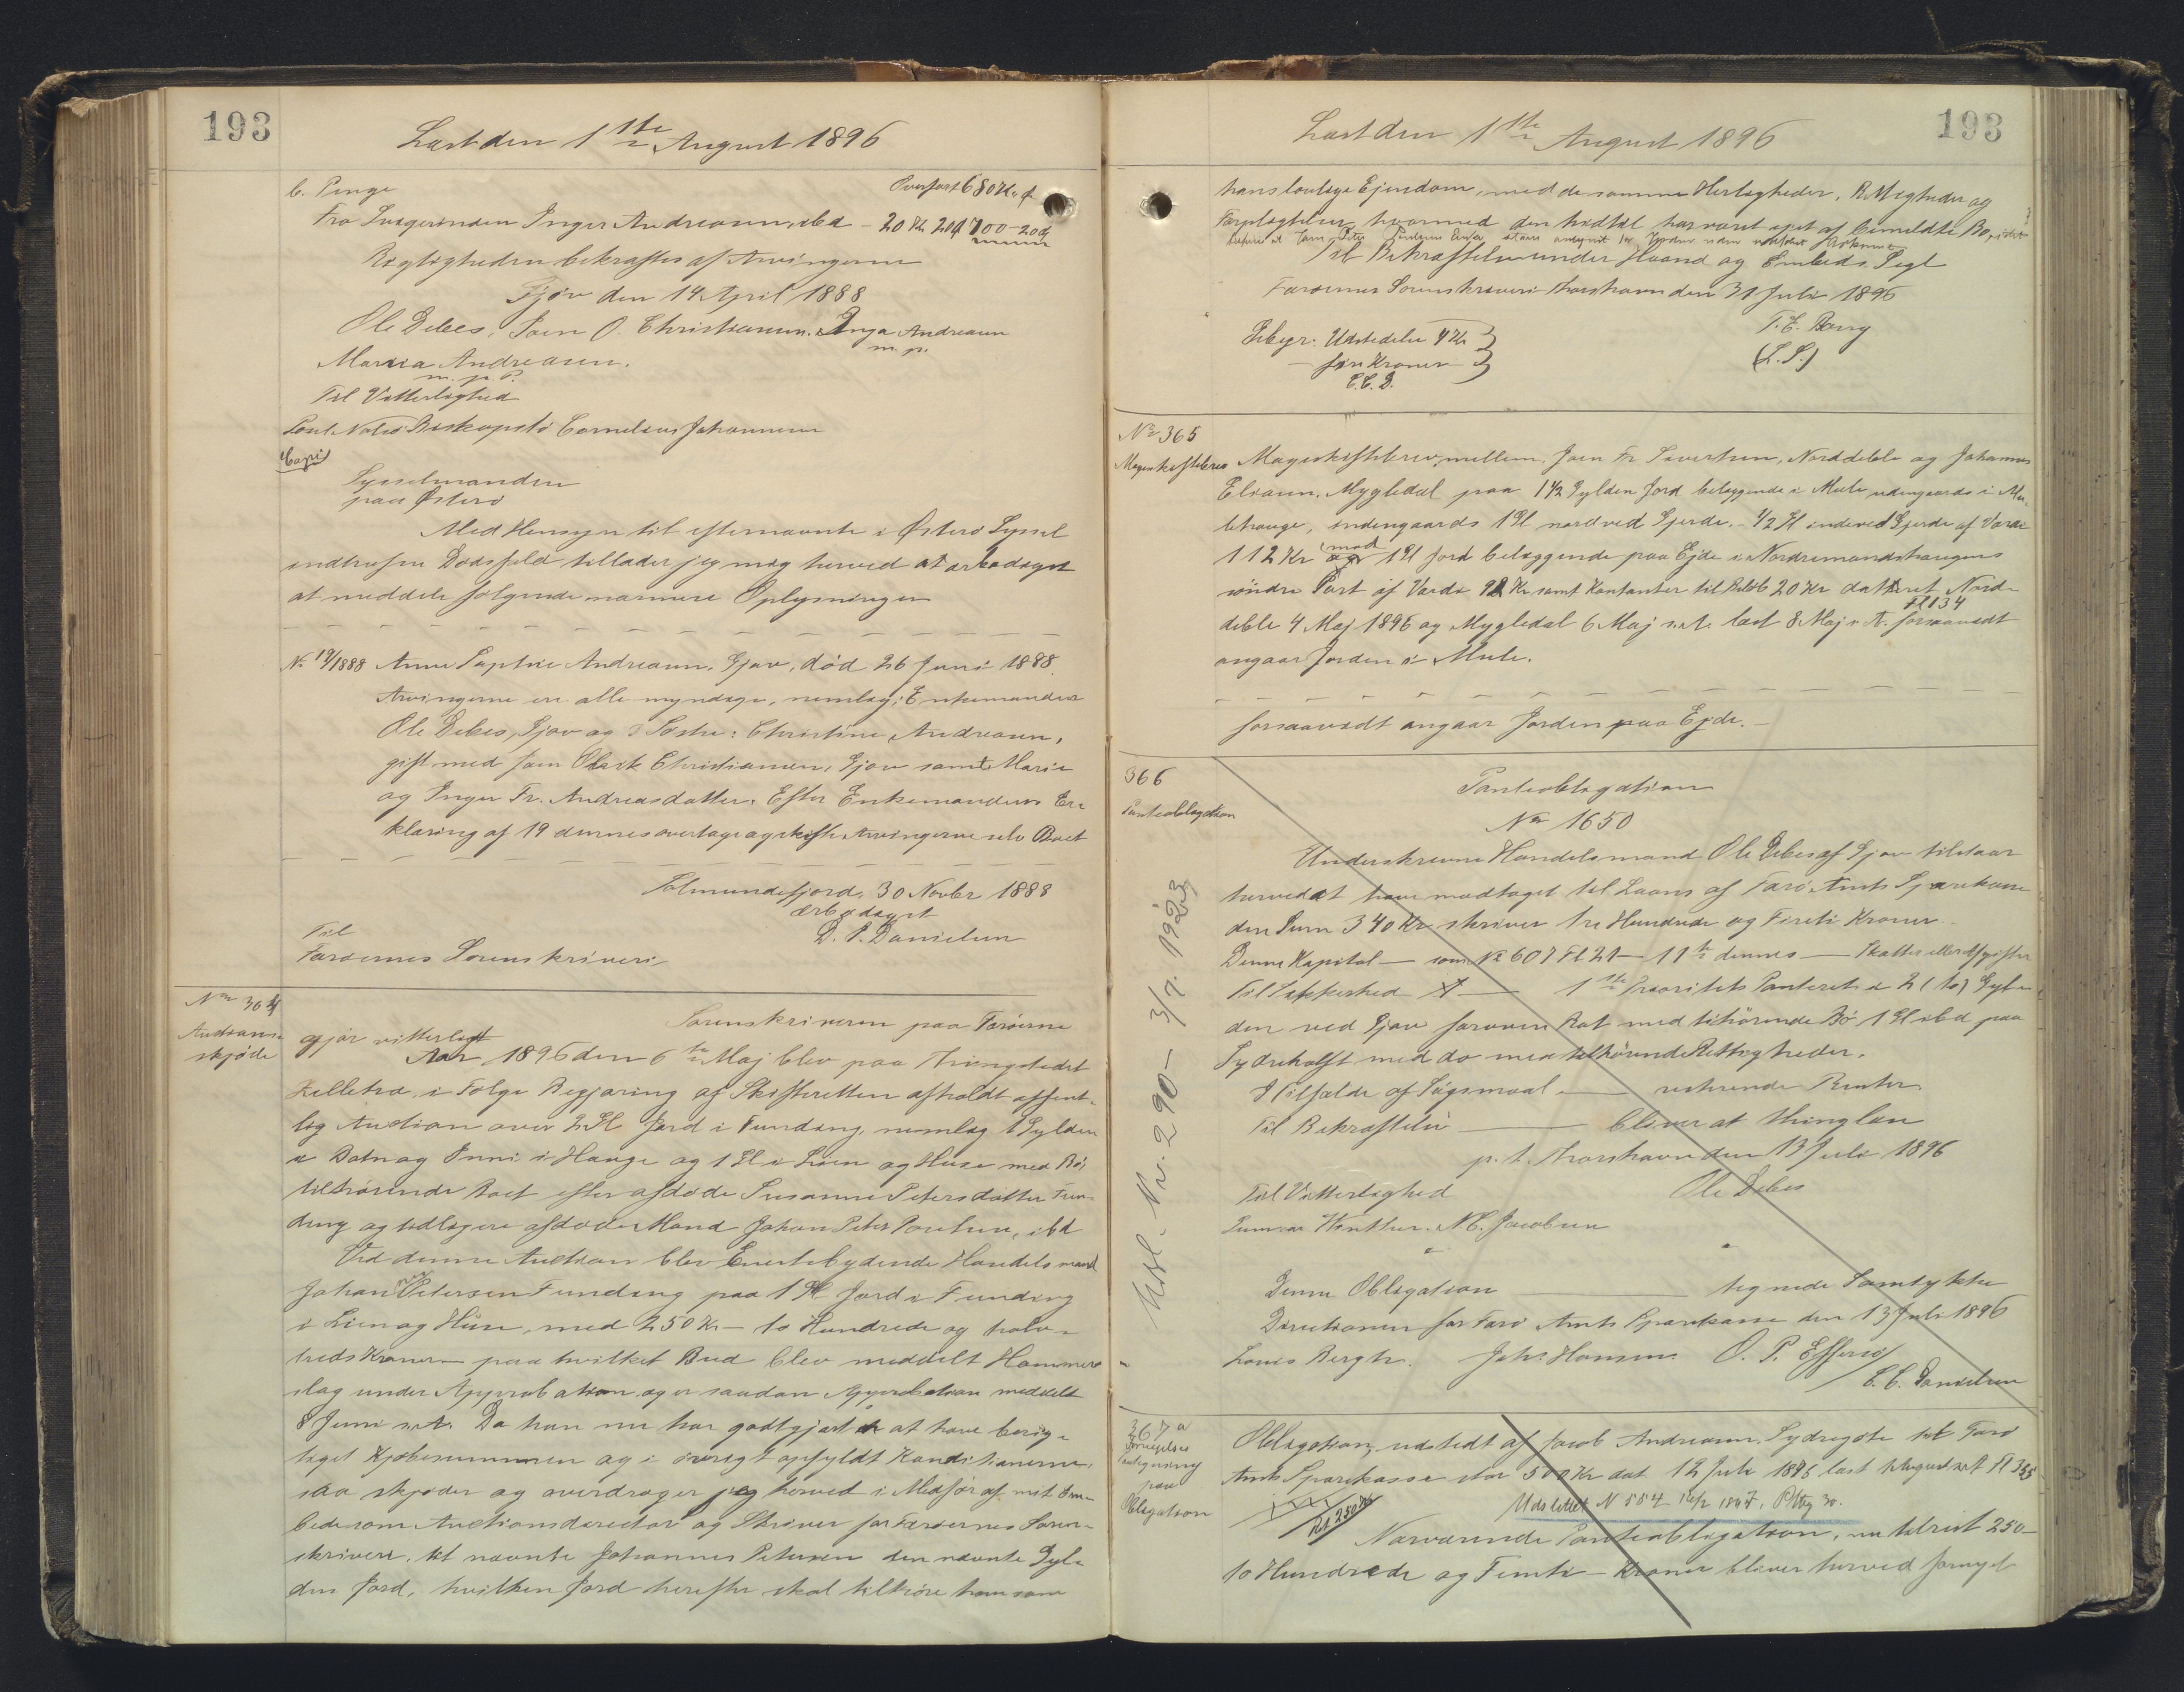 193
Læst den 1ste August 1896
C. Penge Overført 680 Kr. "
Fra Svigerinden Inger Andreasen, ibd - 20 Kr 20 Ø 700-20Ø
Rigtigheden bekræftes af Arvingerne
Gjov den 14 April 1888
Ole Debes, Joen O. Christiansen. Inga Andreasen
m. p.
Maria Andreasen.
m. p. P.
Til Vitterlighed
Poul Niclas Biskopstø Cornelius Johannesen
Copi
Sysselmanden
paa Østerø
Med Hensyn til efternævnte i Østerø Syssel
indtrufne Dødsfald tillader jeg mig herved at ærbødigst
at meddele følgende nærmere Oplysninger
No 19/1888 Anne Sophie Andreasen, Gjov, død 26 Juni 1888.
Arvingerne ere alle myndige, nemlig: Enkemanden
Ole Debes, Gjov og 3 Søstre: Christine Andreasen,
gift med Joen Olrik Christiansen, Gjov samt Marie
og Inger Fr. Andreasdatter. Efter Enkemandens Er-
klæring af 19 dennes overtage og skifte Arvingerne selv Boet
Solmundefjord, 30 Novbr 1888
ærbødigst
Til D. P. Danielsen
Færøernes Sorenskriveri
No 364
Auctions-
skjøde
Sorenskriveren paa Færøerne
gjør vitterligt
Aar 1896 den 6te Maj blev paa Thingstedet
Selletræ, i Følge Begjæring af Skifteretten afholdt offent-
lig Auction over 2 Gl Jord i Funding, nemlig 1 Gylden
a Botn og Inni i Hauge og 1 Gl i Lien og Huse med Bø,
tilhørende Boet efter afdøde Susanne Petersdatter Fun-
ding og tidligere afdøde Mand Johan Peter Poulsen, ibd
Ved denne Auction blev Enestebydende Handelsmand
Johannes Petersen Funding paa 1 Gl Jord i Funding
i Lien og Huse, med 250 Kr - to Hundrede og halv-
treds Kroner - paa hvilket Bud blev meddelt Hammers-
slag under Approbation og er saadan Approbation meddelt
8 Juni s. A. Da han nu har godtgjort at have berig-
tiget Kjøbesummen og i øvrigt opfyldt Konditionerne,
saa skjøder og overdrager jeg herved i Medfør af mit Em-
bede som Auctionsdirector og Skriver for Færøernes Soren-
skriveri, til nævnte Johannes Petersen den nævnte Gyl-
den Jord, hvilken Jord herefter skal tilhøre ham som
193
Læst den 1ste August 1896
hans lovlige Ejendom, med de samme Herligheder, Rettigheder og
Forpligtelser, hvormed den hidtil har været ejet af bemeldte Bo, idet
Til Bekræftelse under Haand og Embeds Segl
Færøernes Sorenskriveri Thorshavn den 31 Juli 1896
Gebyr: Udstedelse 4 Kr T. E. Borg
- fire Kroner - (L. S.)
E. E. D.
No 365
Mageskiftebrev
Mageskiftebrev, mellem Joen Fr Sivertsen, Norddeble og Johannes
Eliasen, Mygledal paa 1½ Gylden Jord beliggende i Mule udengaards i Mu-
lehauge, indengaards 1 Gl nordved Gjerde, - ½ Gl indeved Gjerde af Værdi
112 Kr mod 1 Gl Jord beliggende paa Ejde i Nordremandshaugens
søndre Part af Værdi 92 Kr samt Kontanter til Beløb 20 Kr dateret Nord-
deble 4 Maj 1896 og Mygledal 6 Maj s. A. læst 8 Maj s. A. Fl 134 forsaavidt
angaar Jorden i Mule.
forsaavidt angaar Jorden paa Ejde. -
366
Panteobligation
Panteobligation
No 1650
Underskrevne Handelsmand Ole Debes af Gjov tilstaar
herved at have modtaget til Laans af Færø Amts Sparekasse
den Sum 340 Kr skriver tre Hundrede og Fireti Kroner
Denne Kapital — som No 607 Fl 21 - 11te dennes — Skatter eller Afgifter
Til Sikkerhed — 1ste Prioritets Panteret i 2 (to) Gyl-
den ved Gjov foroven Rát med tilhørende Bø 1 Gl ibd paa
Sydrehalft med do med tilhørende Rettigheder.
I Tilfælde af Søgsmaal — resterende Renter
Til Bekræftelse — bliver at thinglæse
p. t. Thorshavn den 13 Juli 1896
Til Vitterlighed Ole Debes
Winther. N. C. Jacobsen
Denne Obligation — tegnede Samtykke
Directionen for Færø Amts Sparekasse den 13 Juli 1896
Louis Bergh. Johs Hansen. O. P. Effersø
C. C. Danielsen
Udsl. Nr. 290 - 3/7. 1923
367a
Fornyelses
Paategning
paa
Obligation
Obligation, udstedt af Jacob Andreasen, Sydregøte til Færø
Amts Sparekasse stor 500 Kr dat 12 Juli 1886 læst August s. A. Fl 355
Udslettet N 554 1897.
Nærværende Panteobligation, nu tilrest 250-
to Hundrede og Femti - Kroner bliver herved fornyet